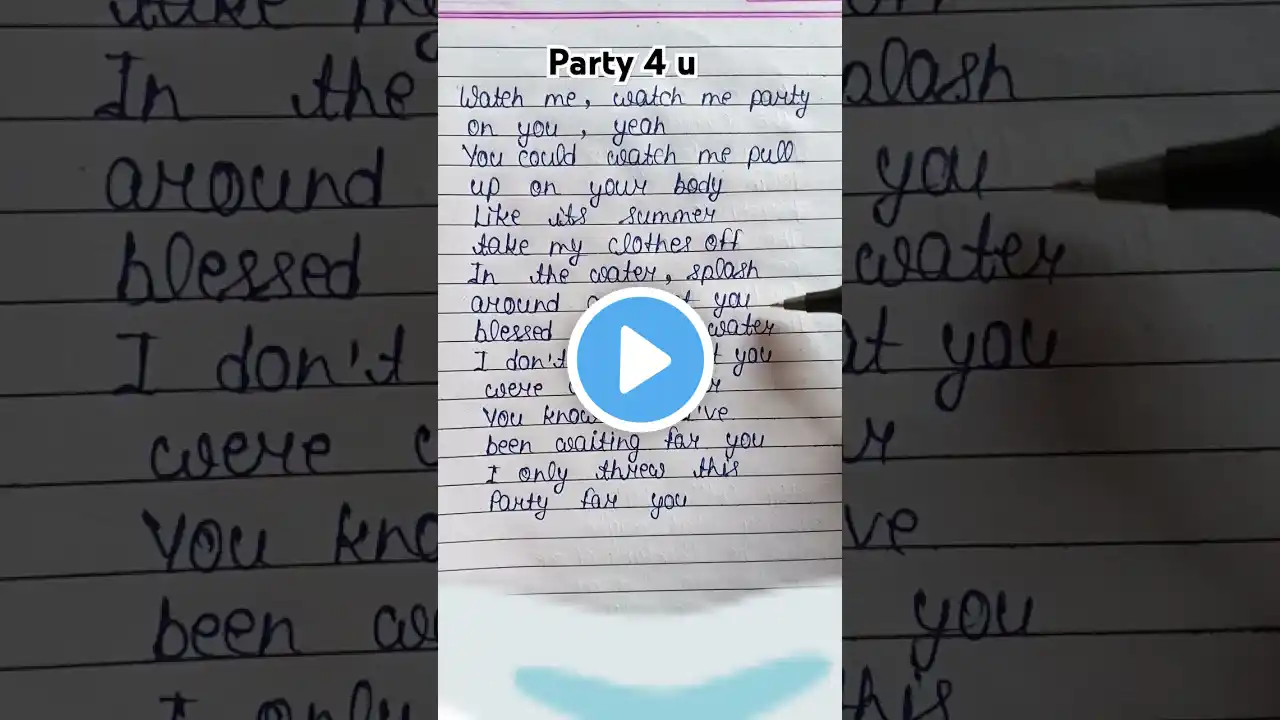 Party 4 u
Watch me, watch me party
on you, yeah
You could watch me pull
up on your body
Like its summer
take my clothes off
In the water, splash
around you
blessed water
I don't you
were
You know
been waiting far you
I only threw this
Party far you